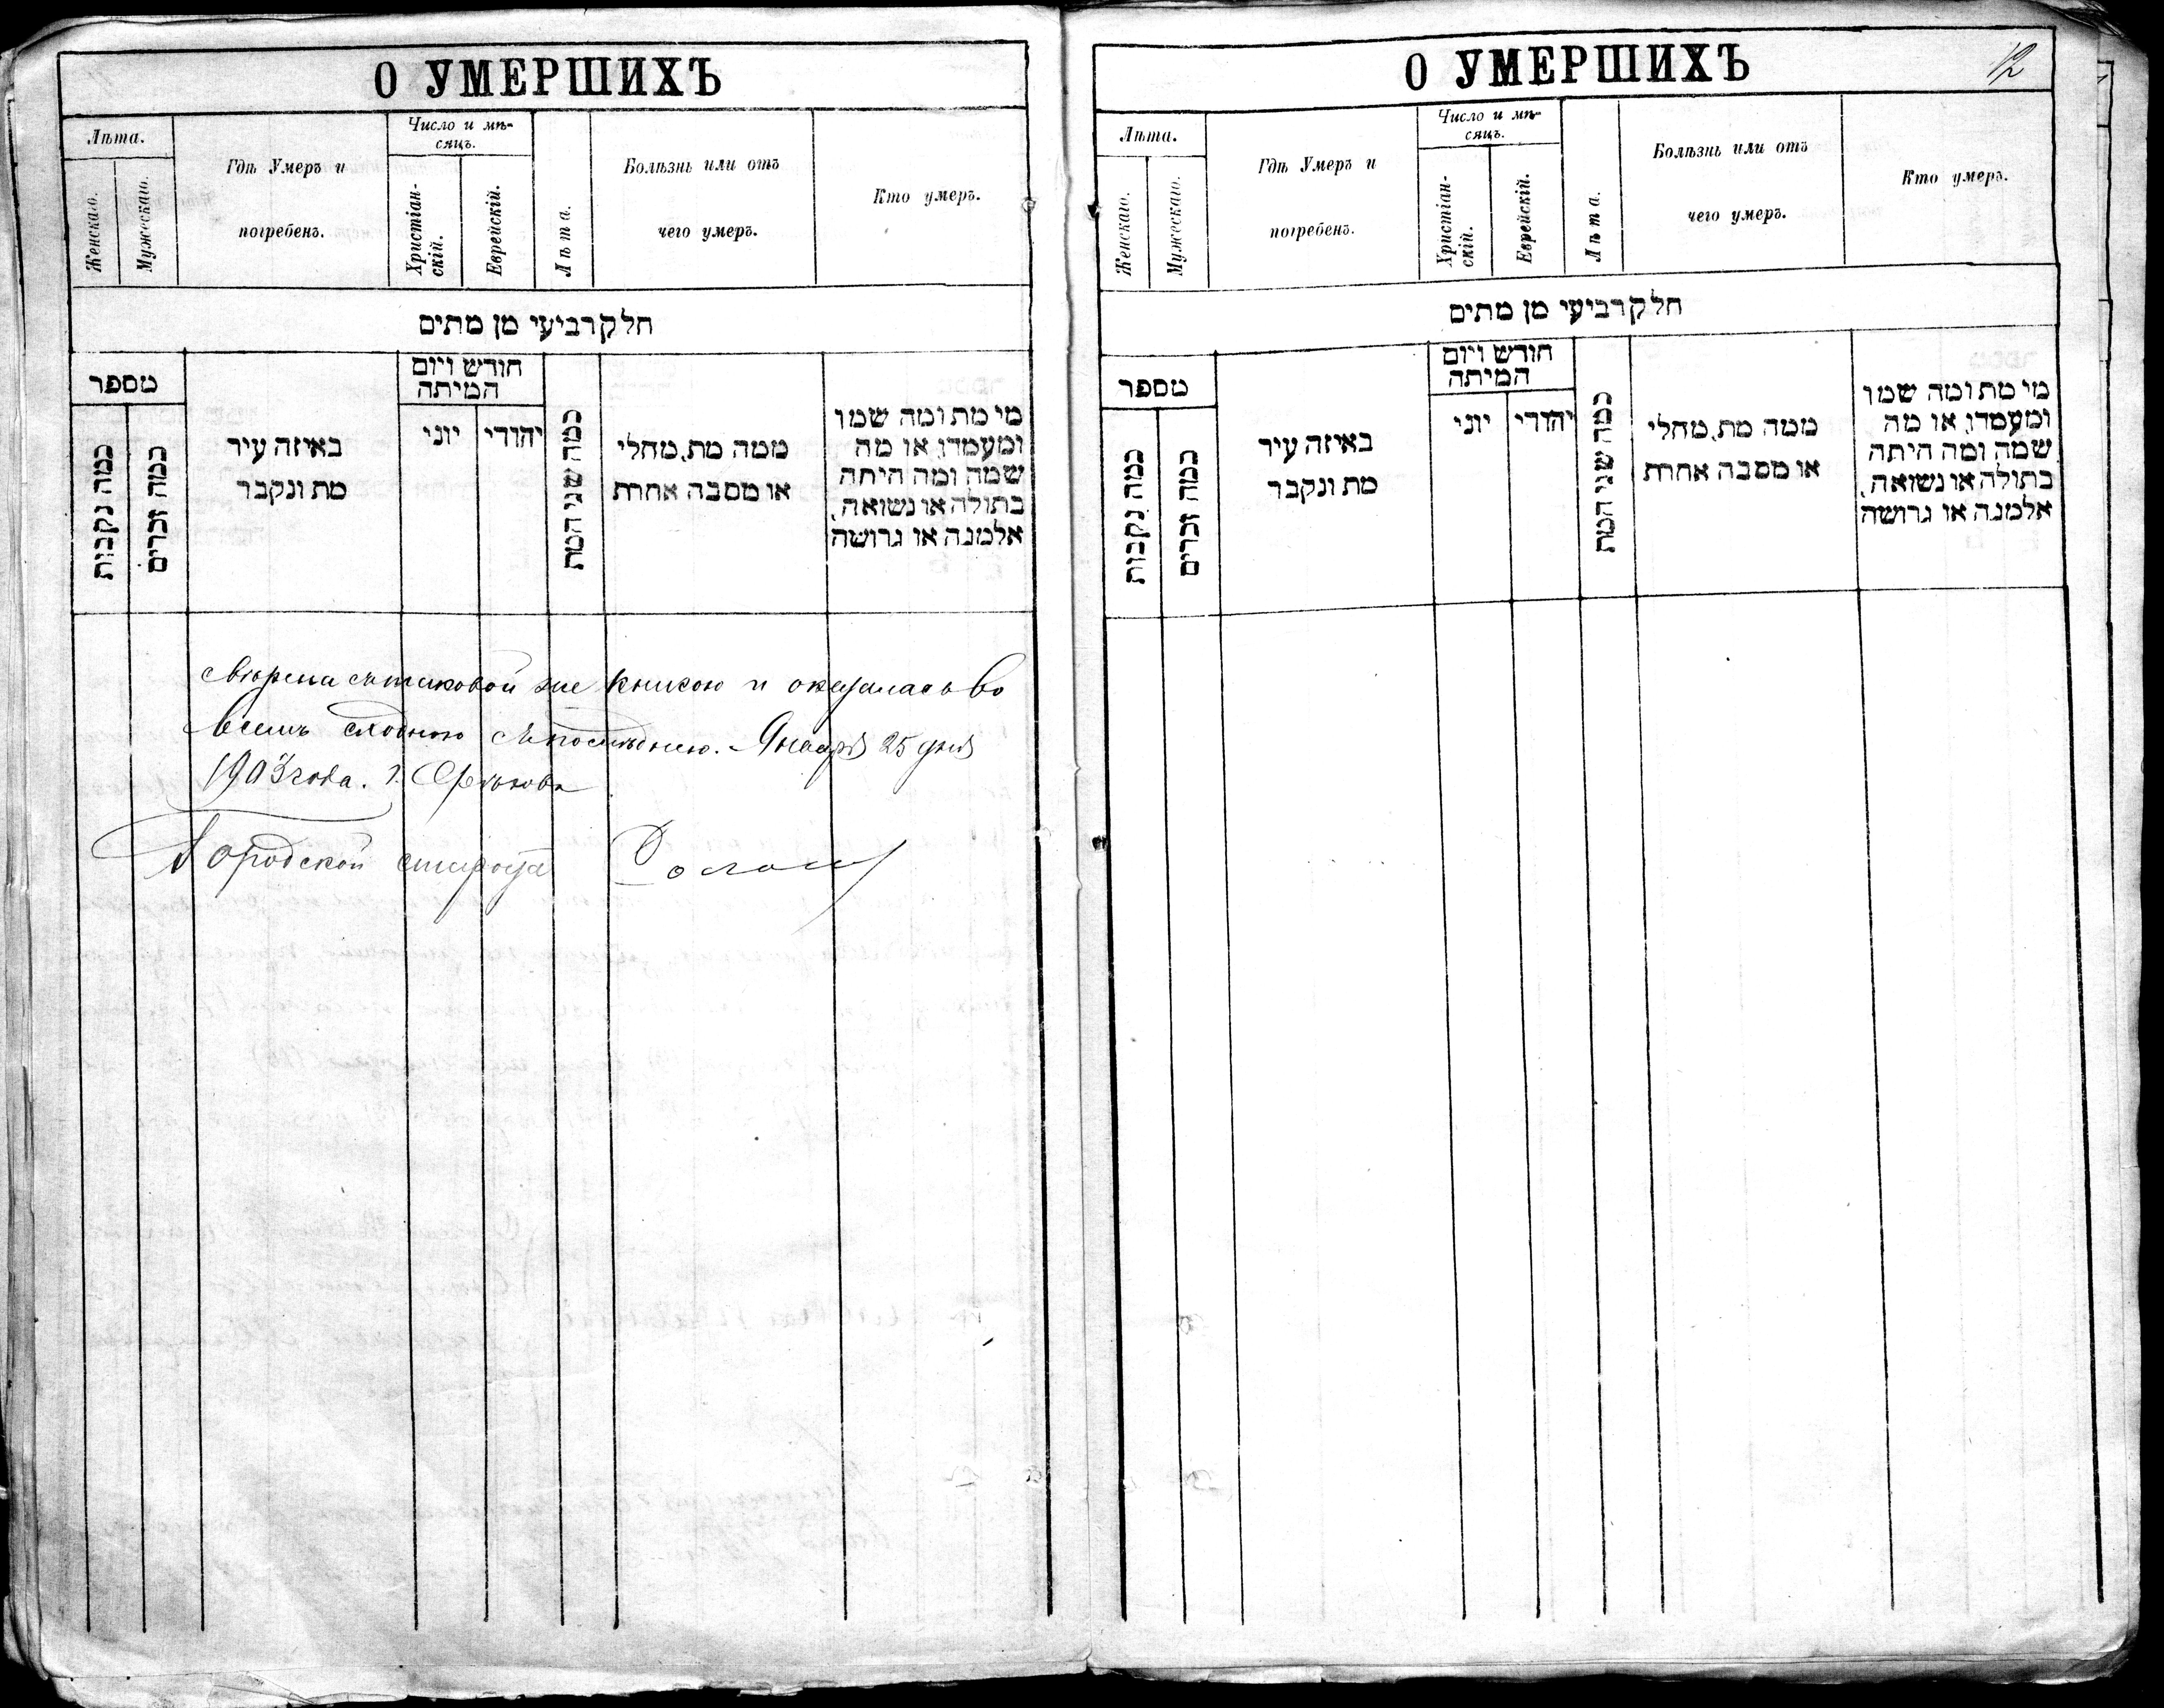 О УМЕРШИХЪ
Лѣта.
Женскаго.
Мужескаго.
Гдѣ Умеръ и
погребенъ.
Число и мѣ-
сяцъ.
Христіан-
скій.
Еврейскій.
Лѣта.
Болѣзнь или отъ
чего умеръ.
Кто умеръ.
חלק רביעי מן מתים
מספר
כמה נקבות
כמה זכרים
באיזה עיר
מת ונקבר
חודש ויום
המיתה
יוני
יהודי
כמה שני המת
ממה מת, מחלי
או מסבה אחרת
מי מת ומה שמו
ומעמדו, או מה
שמה ומה היתה
בתולה או נשואה,
אלמנה או גרושה
свѣрена съ таковой же книгою и оказалась во
всемъ сходною съ послѣднею. Января 25 дня
1903 года. г.
Городской староста
О УМЕРШИХЪ
12
Лѣта.
Женскаго.
Мужескаго.
Гдѣ Умеръ и
погребенъ.
Число и мѣ-
сяцъ.
Христіан-
скій.
Еврейскій.
Лѣта.
Болѣзнь или отъ
чего умеръ.
Кто умеръ.
חלק רביעי מן מתים
מספר
כמה נקבות
כמה זכרים
באיזה עיר
מת ונקבר
חודש ויום
המיתה
יוני
יהודי
כמה שני המת
ממה מת, מחלי
או מסבה אחרת
מי מת ומה שמו
ומעמדו, או מה
שמה ומה היתה
בתולה או נשואה,
אלמנה או גרושה